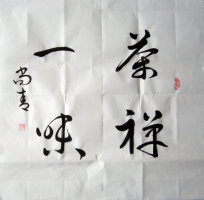 茶禅
一味
尚青